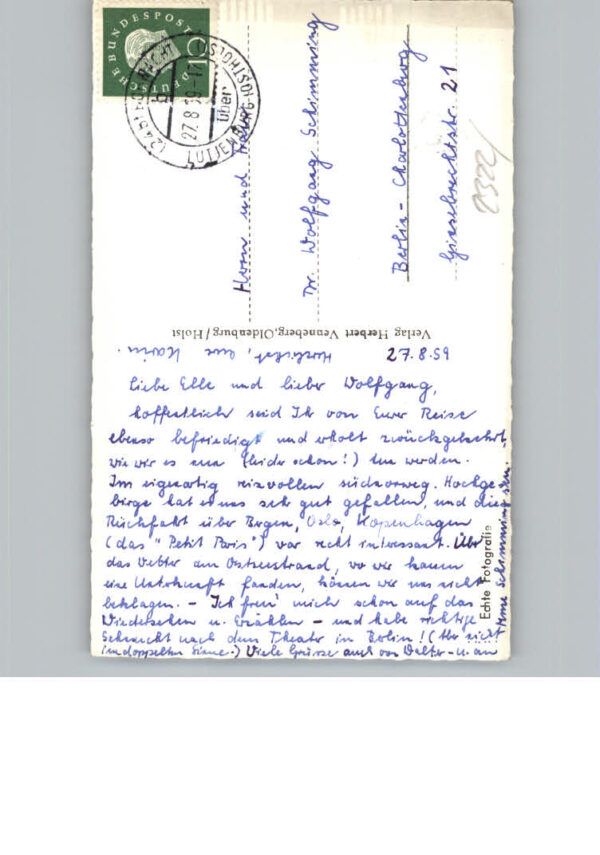 DEUTSCHE BUNDESPOST
10
LÜTJENBURG
über
27.8.59-17
Herrn und Frau
Dr. Wolfgang Schimming
Berlin - Charlottenburg
Giesebrechtstr. 21
2322
Verlag Herbert Venneberg, Oldenburg/Holst
27.8.59
Liebe Elle und lieber Wolfgang,
hoffentlich seid Ihr von Eurer Reise
ebenso befriedigt und erholt zurückgekehrt,
wie wir es nun (leider schon!) tun werden.
Im eigenartig reizvollen südnorweg. Hochge-
birge hat es uns sehr gut gefallen, und die
Rückfahrt über Bergen, Oslo, Kopenhagen
(das "Petit Paris") war recht interessant. Über
das Wetter am Ostseestrand, wo wir kaum
eine Unterkunft fanden, können wir uns nicht
beklagen. - Ich freu' mich schon auf das
Wiedersehen u. Erzählen - und habe richtige
Sehnsucht nach dem Theater in Berlin! (Aber nicht
im doppelten Sinne.) Viele Grüsse auch von Walter - u. an
Schimming sen.
Herzlichst, Eure Karin.
Echte Fotografie